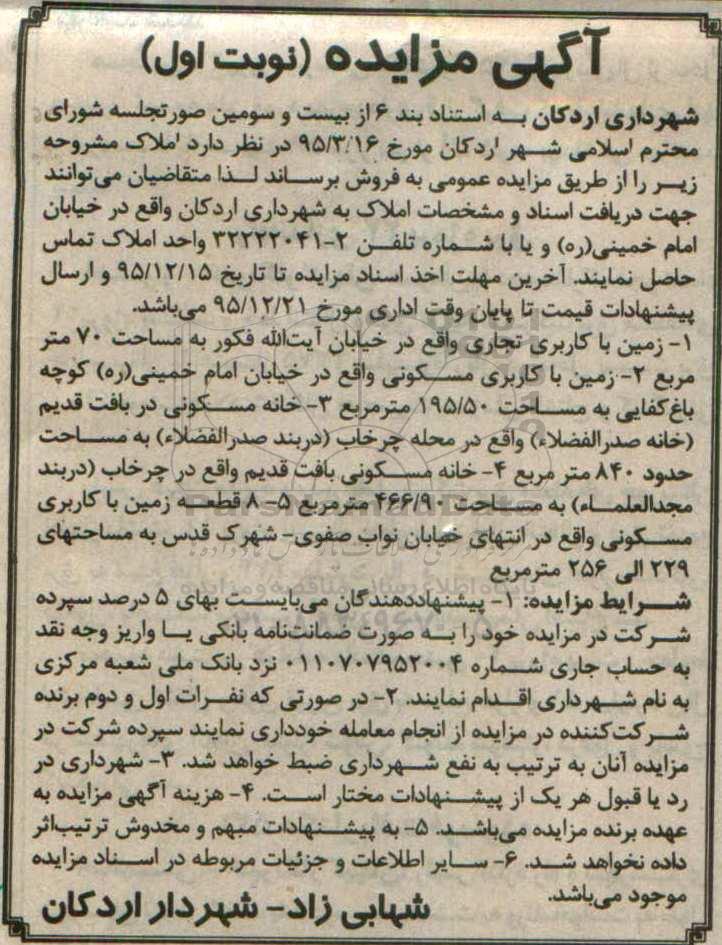 آگهی مزایده (نوبت اول)
شهرداری اردکان به استناد بند ۶ از بیست و سومین صورتجلسه شورای
محترم اسلامی شهر اردکان مورخ ۹۵/۳/۱۶ در نظر دارد املاک مشروحه
زیر را از طریق مزایده عمومی به فروش برساند لذا متقاضیان می‌توانند
جهت دریافت اسناد و مشخصات املاک به شهرداری اردکان واقع در خیابان
امام خمینی(ره) و یا با شماره تلفن ۲-۳۲۲۲۲۰۴۱ واحد املاک تماس
حاصل نمایند. آخرین مهلت اخذ اسناد مزایده تا تاریخ ۹۵/۱۲/۱۵ و ارسال
پیشنهادات قیمت تا پایان وقت اداری مورخ ۹۵/۱۲/۲۱ می‌باشد.
۱- زمین با کاربری تجاری واقع در خیابان آیت‌الله فکور به مساحت ۷۰ متر
مربع ۲- زمین با کاربری مسکونی واقع در خیابان امام خمینی(ره) کوچه
باغ‌کفایی به مساحت ۱۹۵/۵۰ مترمربع ۳- خانه مسکونی در بافت قدیم
(خانه صدرالفضلاء) واقع در محله چرخاب (دربند صدرالفضلاء) به مساحت
حدود ۸۴۰ متر مربع ۴- خانه مسکونی بافت قدیم واقع در چرخاب (دربند
مجدالعلماء) به مساحت ۴۶۶/۹۰ مترمربع ۵- ۸ قطعه زمین با کاربری
مسکونی واقع در انتهای خیابان نواب صفوی- شهرک قدس به مساحتهای
۲۲۹ الی ۲۵۶ مترمربع
شرایط مزایده: ۱- پیشنهاددهندگان می‌بایست بهای ۵ درصد سپرده
شرکت در مزایده خود را به صورت ضمانت‌نامه بانکی یا واریز وجه نقد
به حساب جاری شماره ۰۱۱۰۷۰۷۹۵۲۰۰۴ نزد بانک ملی شعبه مرکزی
به نام شهرداری اقدام نمایند. ۲- در صورتی که نفرات اول و دوم برنده
شرکت‌کننده در مزایده از انجام معامله خودداری نمایند سپرده شرکت در
مزایده آنان به ترتیب به نفع شهرداری ضبط خواهد شد. ۳- شهرداری در
رد یا قبول هر یک از پیشنهادات مختار است. ۴- هزینه آگهی مزایده به
عهده برنده مزایده می‌باشد. ۵- به پیشنهادات مبهم و مخدوش ترتیب‌اثر
داده نخواهد شد. ۶- سایر اطلاعات و جزئیات مربوطه در اسناد مزایده
موجود می‌باشد.
شهابی زاد- شهردار اردکان